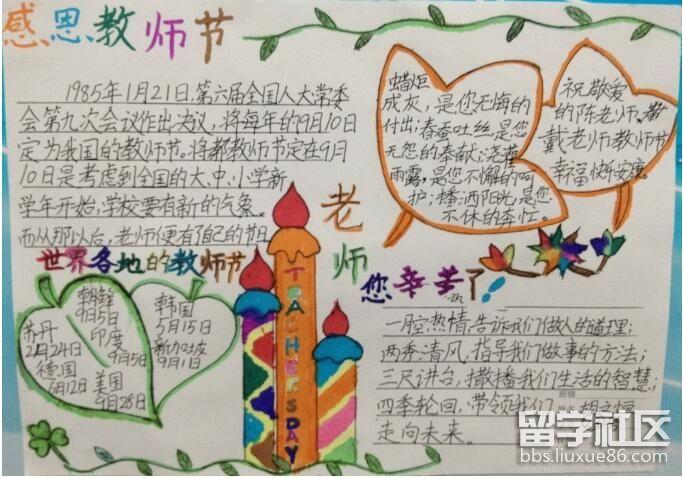 感恩教师节
1985年1月21日,第六届全国人大常委
会第九次会议作出决议,将每年的9月10日
定为我国的教师节。将教师节定在9月
10日是考虑到全国的大、中、小学新
学年开始,学校要有新的气象。
而从那以后,老师便有了自己的节日
蜡炬
成灰,是您无悔的
付出;春蚕吐丝是您
无怨的奉献;浇灌
雨露,是您不懈的呵
护;播洒阳光,是您
不休的奉忙。
祝敬爱
的陈老师,
戴老师教师节
幸福快乐安康。
世界各地的教师节
朝鲜
9月5日
印度
9月5日
苏丹
2月24日
德国
6月12日
美国
9月28日
韩国
5月15日
新加坡
9月1日
TEACHERSDAY
老师
您辛苦了!
一月空热情,告诉我们做人的道理;
两季清风,指导我们做事的方法;
三尺讲台,撒播我们生活的智慧;
四季轮回,带领我们
走向未来。
留学社区
bbs.liuxue86.com